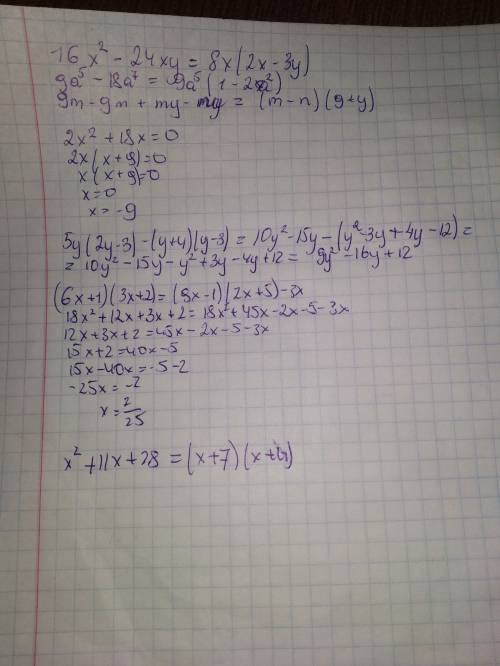 16x² - 24xy = 8x(2x - 3y)
9a⁵ - 18a⁷ = 9a⁵(1 - 2a²)
9m - 9n + my - ny = (m - n)(9 + y)
2x² + 18x = 0
2x(x + 9) = 0
x(x + 9) = 0
x = 0
x = -9
5y(2y - 3) - (y + 4)(y - 3) = 10y² - 15y - (y² - 3y + 4y - 12) =
= 10y² - 15y - y² + 3y - 4y + 12 = 9y² - 16y + 12
(6x + 1)(3x + 2) = (9x - 1)(2x + 5) - 3x
18x² + 12x + 3x + 2 = 18x² + 45x - 2x - 5 - 3x
12x + 3x + 2 = 45x - 2x - 5 - 3x
15x + 2 = 40x - 5
15x - 40x = -5 - 2
-25x = -2
x = 2/25
x² + 11x + 28 = (x + 7)(x + 4)